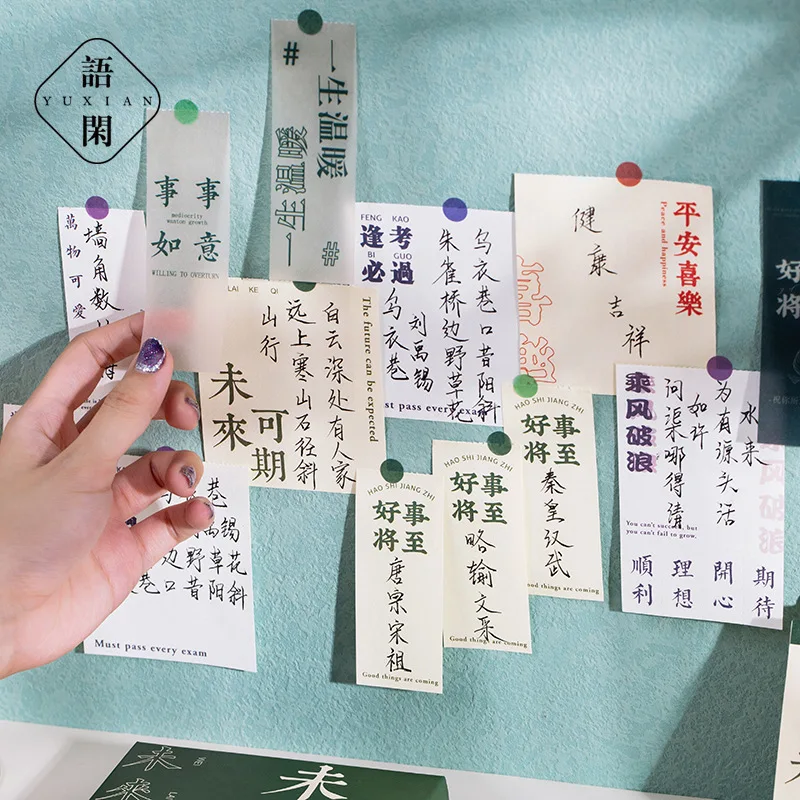 語閑
YUXIAN
#一生温暖
一生温暖#
事事如意
mediocrity
wanton growth
WILLING TO OVERTURN
萬物可愛
墙角数
LAI KE QI
未來可期
The future can be expected
白云深处有人家
远上寒山石径斜
山行
FENG KAO
逢考
BI GUO
必過
乌衣巷口昔阳斜
朱雀桥边野草花
刘禹锡
乌衣巷
Must pass every exam
平安喜樂
Peace and happiness
喜樂
健康吉祥
好
将
乘风破浪
水来
为有源头活
如许
问渠哪得清
You can't succeed but
you can't fail to grow.
順利
理想
開心
期待
巷
禹锡
边野草花
巷口昔阳斜
Must pass every exam
HAO SHI JIANG ZHI
好事
将至
唐宗宋祖
Good things are coming
HAO SHI JIANG ZHI
好事
将至
略输文采
Good things are coming
HAO SHI JIANG ZHI
好事
将至
秦皇汉武
Good things are coming
未來
未